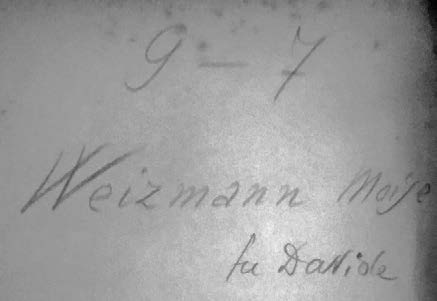 G - 7
Weizmann Moise
fu Davide